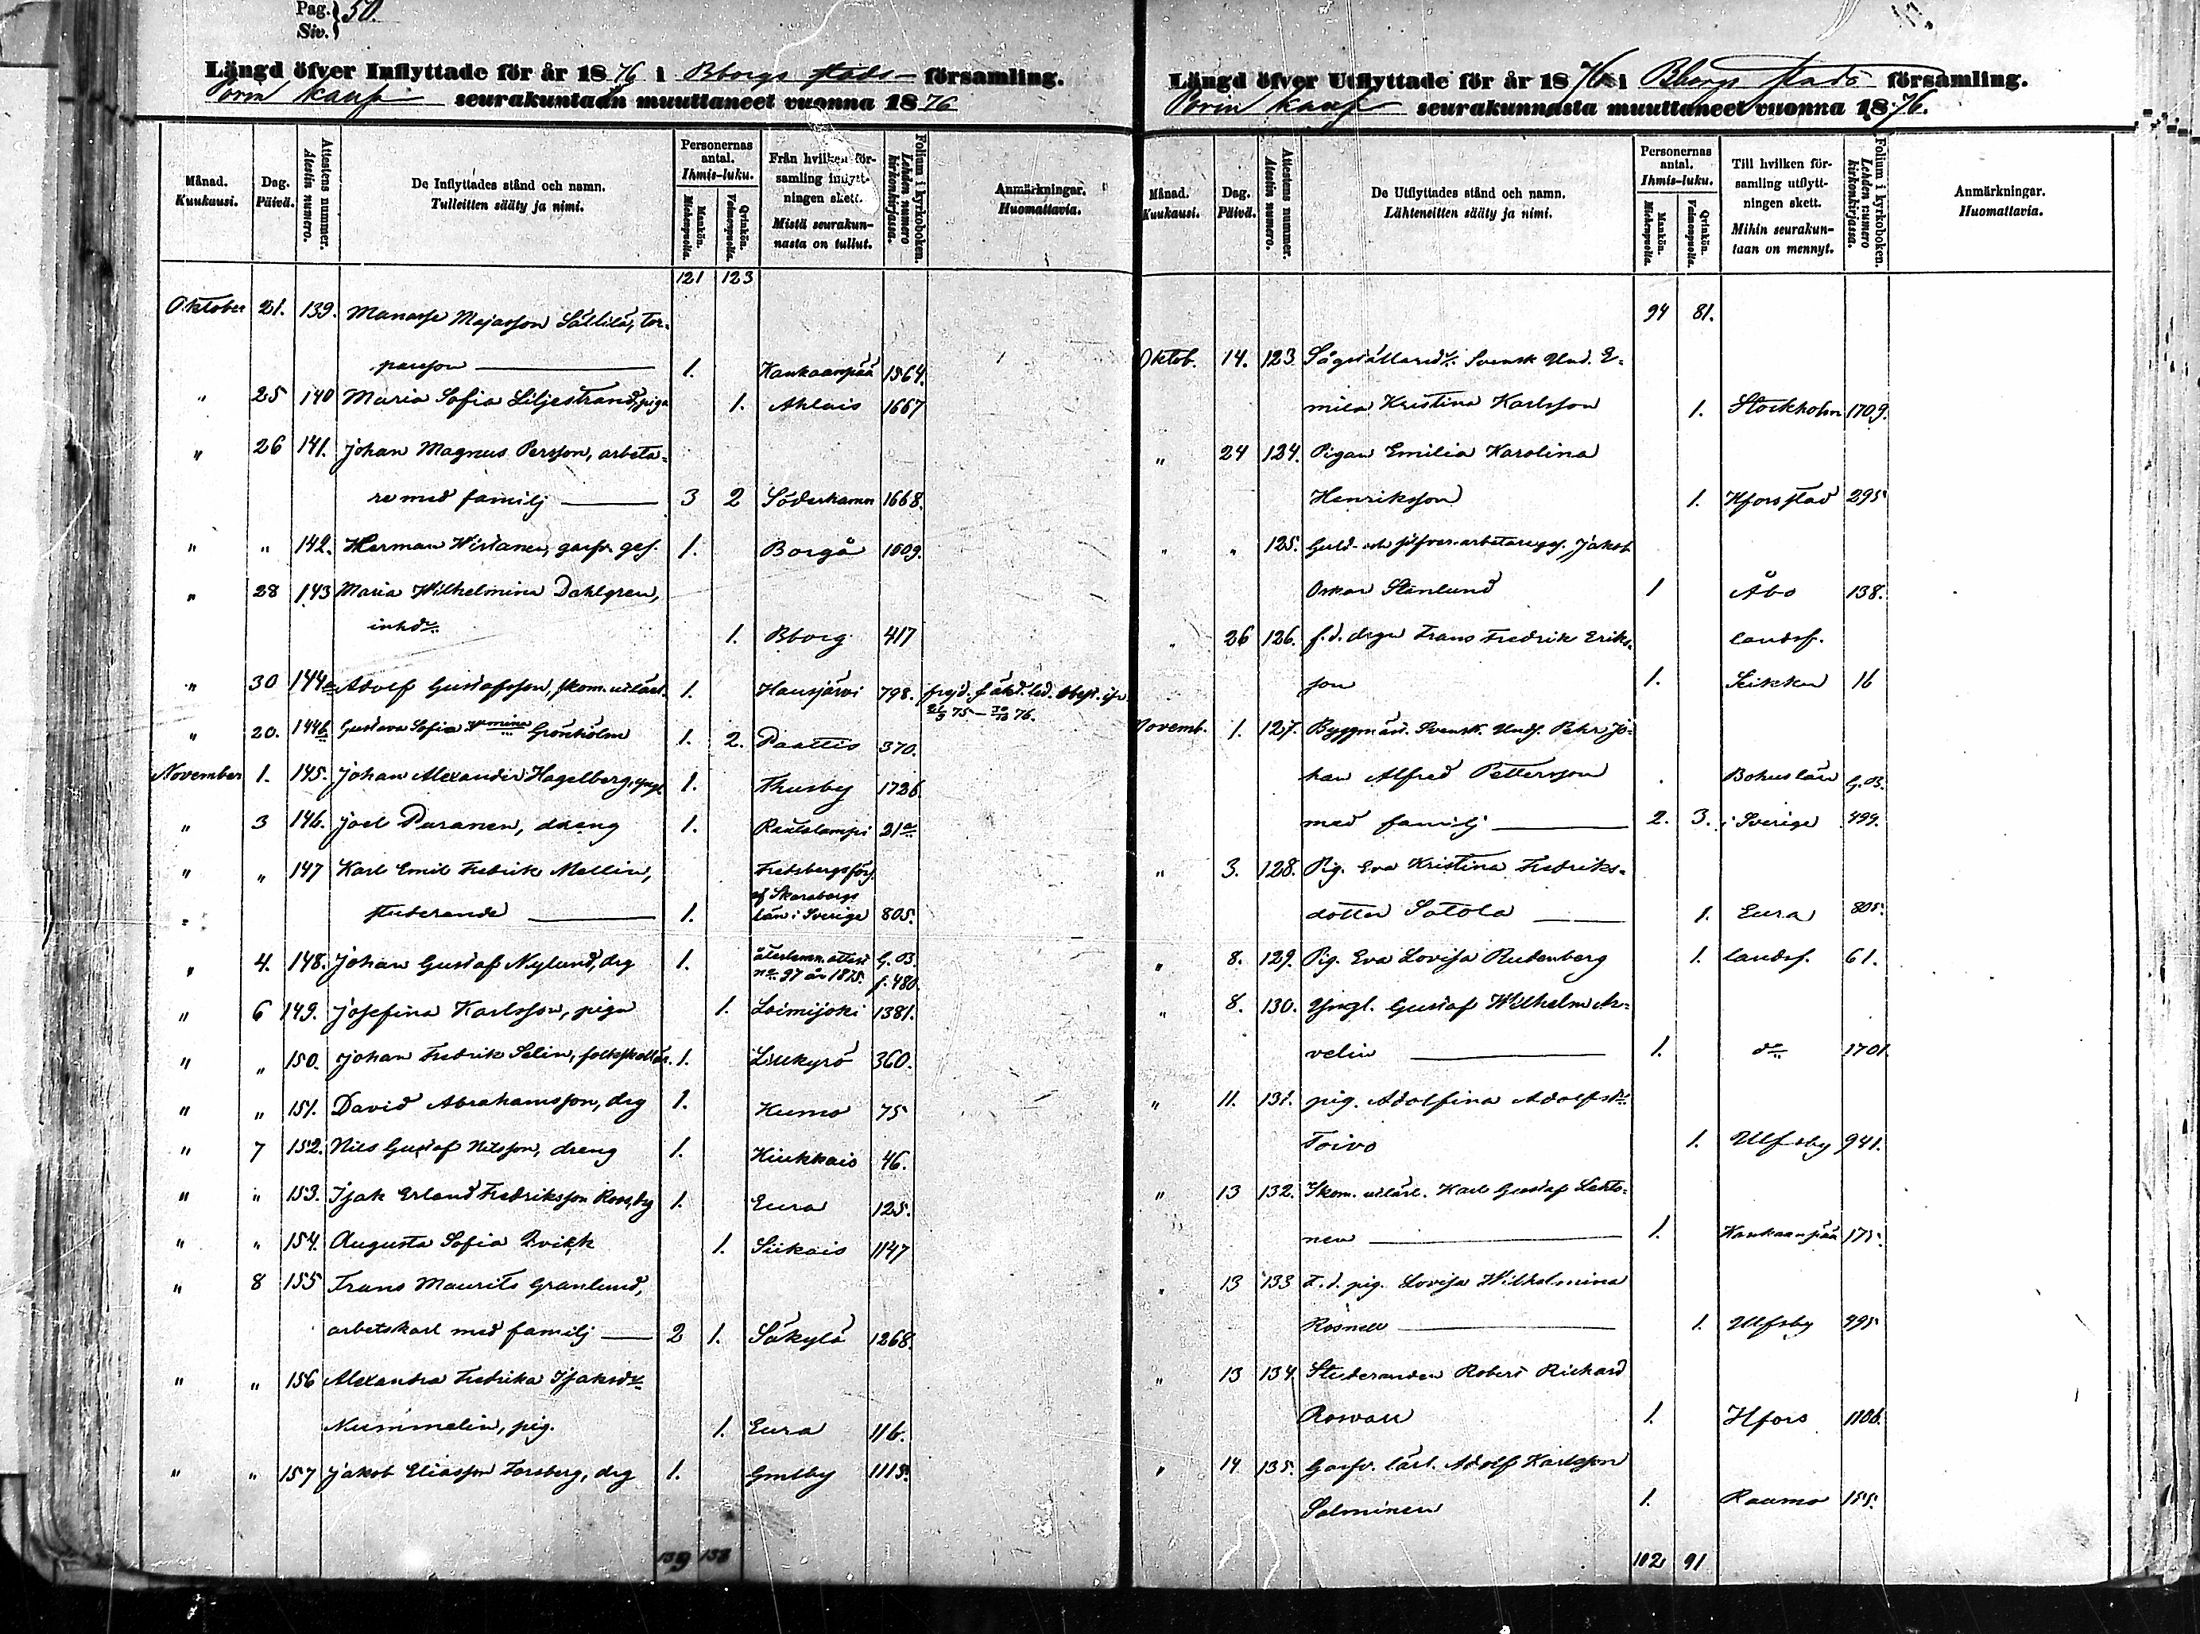 Pag. Siv. } 50.
Längd öfver Inflyttade för år 1876 i Bborgs stads- församling.
Porin kaup seurakuntaan muuttaneet vuonna 1876
Månad. Kuukausi.
Dag. Päivä.
Attestens nummer. Atestin numero.
De Inflyttades stånd och namn. Tulleitten sääty ja nimi.
Personernas antal. Ihmis-luku.
Mankön. Miehenpuolia.
Qvinkön. Vaimonpuolia.
Från hvilken församling inflyttningen skett. Mistä seurakunnasta on tullut.
Folium i kyrkoboken. Lehden numero kirkonkirjassa.
Anmärkningar. Huomattavia.
121 123
Oktober 21. 139. Manasse Majasson Sällilä, tor-
parson 1. Kankaanpää 1564.
" 25 140 Maria Sofia Liljestrand, piga 1. Ahlais 1667
" 26 141. Johan Magnus Persson, arbeta-
re med familj 3 2 Söderhamn 1668.
" " 142. Herman Wirtanen, garfv. ges. 1. Borgå 1009.
" 28 143 Maria Wilhelmina Dahlgren,
inhd. 1. Bborg 417
" 30 144a Adolf Gustafsson, skom. utlärl. 1. Hausjärvi 798.
" 20. 144b Gustava Sofia Wmina Grönholm 1. 2. Paattis 370.
November 1. 145. Johan Alexander Hagelberg, yngl. 1. Thusby 1726.
" 3 146. Joel Puranen, dreng 1. Rautalampi 21a
" " 147 Karl Emil Fredrik Mellin, Fredsbergs förs.
studerande 1. af Skaraborgs län i Sverige 805.
" 4. 148. Johan Gustaf Nylund, drg 1. återlemn. attest no 97 år 1875. G. B. f. 480.
" 6 149. Josefina Karlsson, piga 1. Loimijoki 1381.
" " 150. Johan Fredrik Salin, folkskollär. 1. Storkyrö 360.
" " 151. David Abrahamsson, drg 1. Kumo 75
" 7 152. Nils Gustaf Nilsson, dreng 1. Kiukkais 46.
" " 153. Isak Erland Fredriksson Roos, drg 1. Eura 125.
" " 154. Augusta Sofia Qvick 1. Siikais 1147
" 8 155 Frans Maurits Granlund,
arbetskarl med familj 2 1. Säkylä 1268.
" " 156 Alexandra Fredrika Isaksdr
Nummelin, pig. 1. Eura 116.
" " 157 Jakob Eliasson Forsberg, drg 1. Gmlby 1115.
139 133
Längd öfver Utflyttade för år 1876 i Bborgs stads församling.
Porin kaup seurakunnasta muuttaneet vuonna 1876.
Månad. Kuukausi.
Dag. Päivä.
Attestens nummer. Atestin numero.
De Utflyttades stånd och namn. Lähteneitten sääty ja nimi.
Personernas antal. Ihmis-luku.
Mankön. Miehenpuolia.
Qvinkön. Vaimonpuolia.
Till hvilken församling utflyttningen skett. Mihin seurakuntaan on mennyt.
Folium i kyrkoboken. Lehden numero kirkonkirjassa.
Anmärkningar. Huomattavia.
94 81.
Oktob. 14. 123 Svensk Und. E-
milia Kristina Karlsson 1. Stockholm 1709.
" 24 124. Pigan Emilia Karolina
Henriksson 1. Hfors stad 295
" " 125. Guld- och silfver-arbetareges. Jakob
Oskar Stenlund 1 Åbo 138.
" 26 126. f.d. drgn Frans Fredrik Eriks- landsf.
son 1. Kikku 16
Novemb. 1. 127. Byggmäst. Svensk. Unds. Pehr Jo-
han Alfred Pettersson Bohus län G. B.
med familj 2. 3. i Sverige 499.
" 3. 128. Pig. Eva Kristina Fredriks-
dotter Satola 1. Eura 805.
" 8. 129. Pig. Eva Lovisa Rudenberg 1. landsf. 61.
" 8. 130. Yngl. Gustaf Wilhelm Ar-
velin 1. do 1701.
" 11. 131. pig. Adolfina Adolfsdr
Toivo 1. Ulfsby 941.
" 13 132. Skom. utlärl. Karl Gustaf Lehto-
nen 1. Kankaanpää 175.
" 13 133 F. d. pig. Lovisa Wilhelmina
Rosnell 1. Ulfsby 995
" 13 134. Studeranden Robert Richard
Roswall 1. Hfors 1106.
" 14 135. Garfv. lärl. Adolf Karlsson
Salminen 1. Raumo 155.
102 91